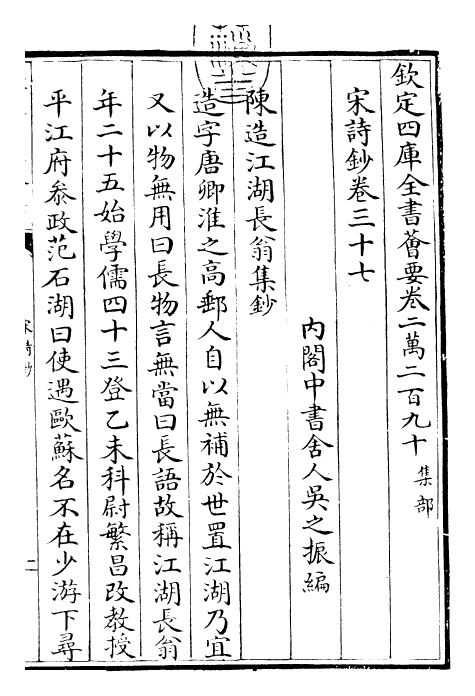 欽定四庫全書薈要卷二萬二百九十 集部
宋詩鈔卷三十七
內閣中書舍人吳之振編
陳造江湖長翁集鈔
造字唐卿淮之高郵人自以無補於世置江湖乃宜
又以物無用曰長物言無當曰長語故稱江湖長翁
年二十五始學儒四十三登乙未科尉繁昌改教授
平江府叅政范石湖曰使遇歐蘇名不在少游下尋
宋詩鈔
二